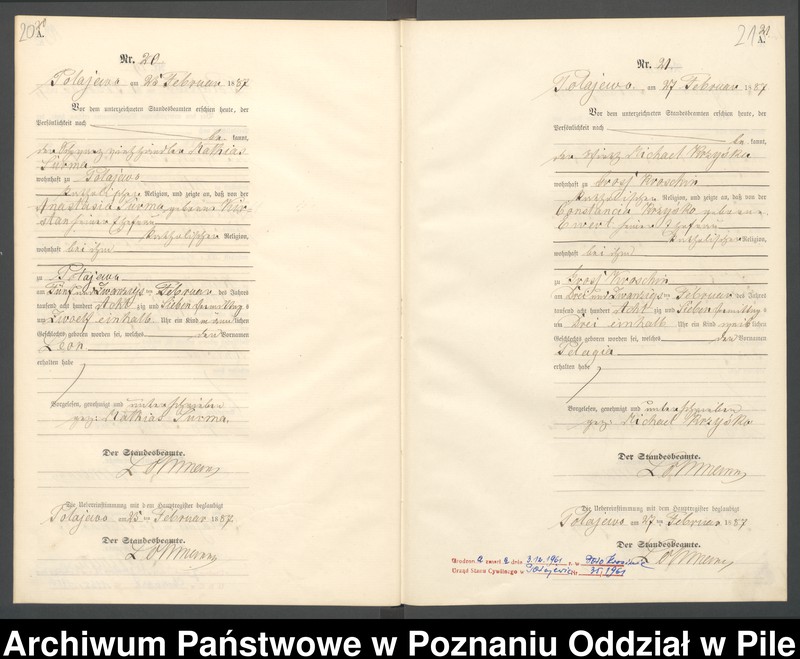 20
A.
Nr. 20.
Polajewo am 25 Februar 1887
Vor dem unterzeichneten Standesbeamten erschien heute, der
Persönlichkeit nach
be kannt,
der Mathias
Surma
wohnhaft zu Polajewo
katholischer Religion, und zeigte an, daß von der
Anastasia Surma geborne
seiner Ehefrau
katholischer Religion,
wohnhaft bei ihm
zu Polajewo
am Fünf und Zwanzigsten Februar des Jahres
tausend acht hundert Acht zig und Sieben Vormittags
um Zwoelf einhalb Uhr ein Kind männlichen
Geschlechts geboren worden sei, welches den Vornamen
Leon
erhalten habe
Vorgelesen, genehmigt und unterschrieben
gez. Mathias Surma.
Der Standesbeamte.
Die Uebereinstimmung mit dem Hauptregister beglaubigt
Polajewo am 25ten Februar 1887.
Der Standesbeamte.
21 21
A.
Nr. 21.
Polajewo am 27 Februar 1887
Vor dem unterzeichneten Standesbeamten erschien heute, der
Persönlichkeit nach
be kannt,
der Wirth Michael Krzyśko
wohnhaft zu Gross Kroschin
katholischer Religion, und zeigte an, daß von der
Constancia Krzyśko geborne
Ewert seiner Ehefrau
katholischer Religion,
wohnhaft bei ihm
zu Gross Kroschin
am Drei und Zwanzigsten Februar des Jahres
tausend acht hundert Acht zig und Sieben Vormittags
um Drei einhalb Uhr ein Kind weiblichen
Geschlechts geboren worden sei, welches den Vornamen
Pelagia
erhalten habe
Vorgelesen, genehmigt und unterschrieben
gez. Michael Krzyśko
Der Standesbeamte.
Die Uebereinstimmung mit dem Hauptregister beglaubigt
Polajewo am 27ten Februar 1887
Der Standesbeamte.
dnia 3.12.1961 r. w
Urząd Stanu Cywilnego w Połajewie Nr. 35/1961
Archiwum Państwowe w Poznaniu Oddział w Pile